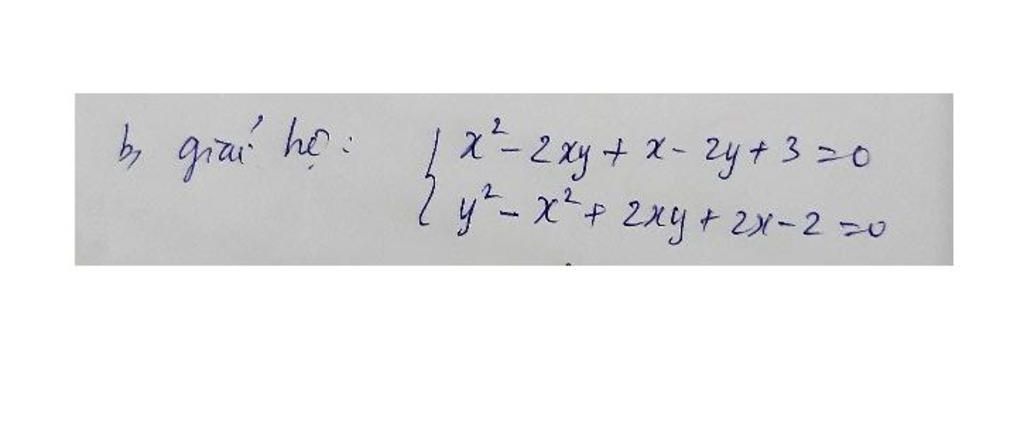 b, giải hệ: { x² - 2xy + x - 2y + 3 = 0
y² - x² + 2xy + 2x - 2 = 0